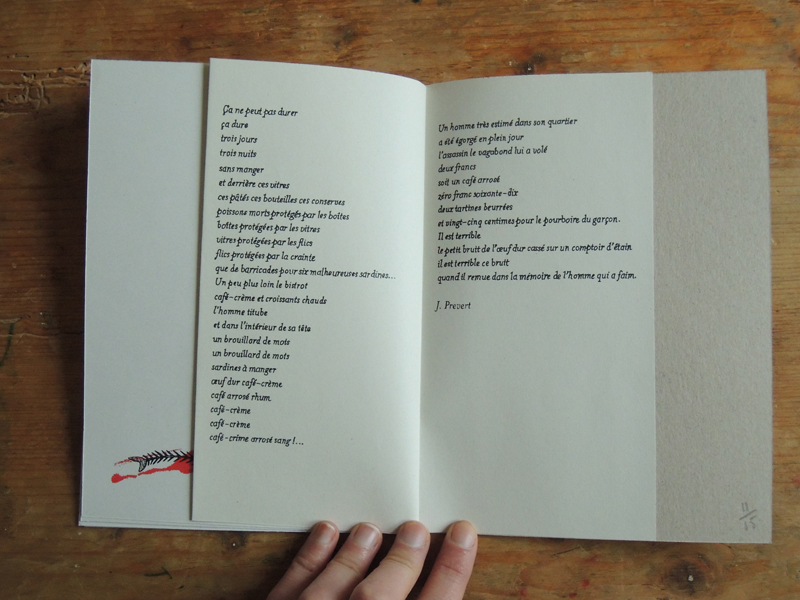 Ça ne peut pas durer
ça dure
trois jours
trois nuits
sans manger
et derrière ces vitres
ces pâtés ces bouteilles ces conserves
poissons morts protégés par les boîtes
boîtes protégées par les vitres
vitres protégées par les flics
flics protégées par la crainte
que de barricades pour six malheureuses sardines...
Un peu plus loin le bistrot
café-crème et croissants chauds
l'homme titube
et dans l'intérieur de sa tête
un brouillard de mots
un brouillard de mots
sardines à manger
œuf dur café-crème
café arrosé rhum
café-crème
café-crème
café-crime arrosé sang !...
Un homme très estimé dans son quartier
a été égorgé en plein jour
l'assassin le vagabond lui a volé
deux francs
soit un café arrosé
zéro franc soixante-dix
deux tartines beurrées
et vingt-cinq centimes pour le pourboire du garçon.
Il est terrible
le petit bruit de l'œuf dur cassé sur un comptoir d'étain
il est terrible ce bruit
quand il remue dans la mémoire de l'homme qui a faim.
J. Prevert
11/15